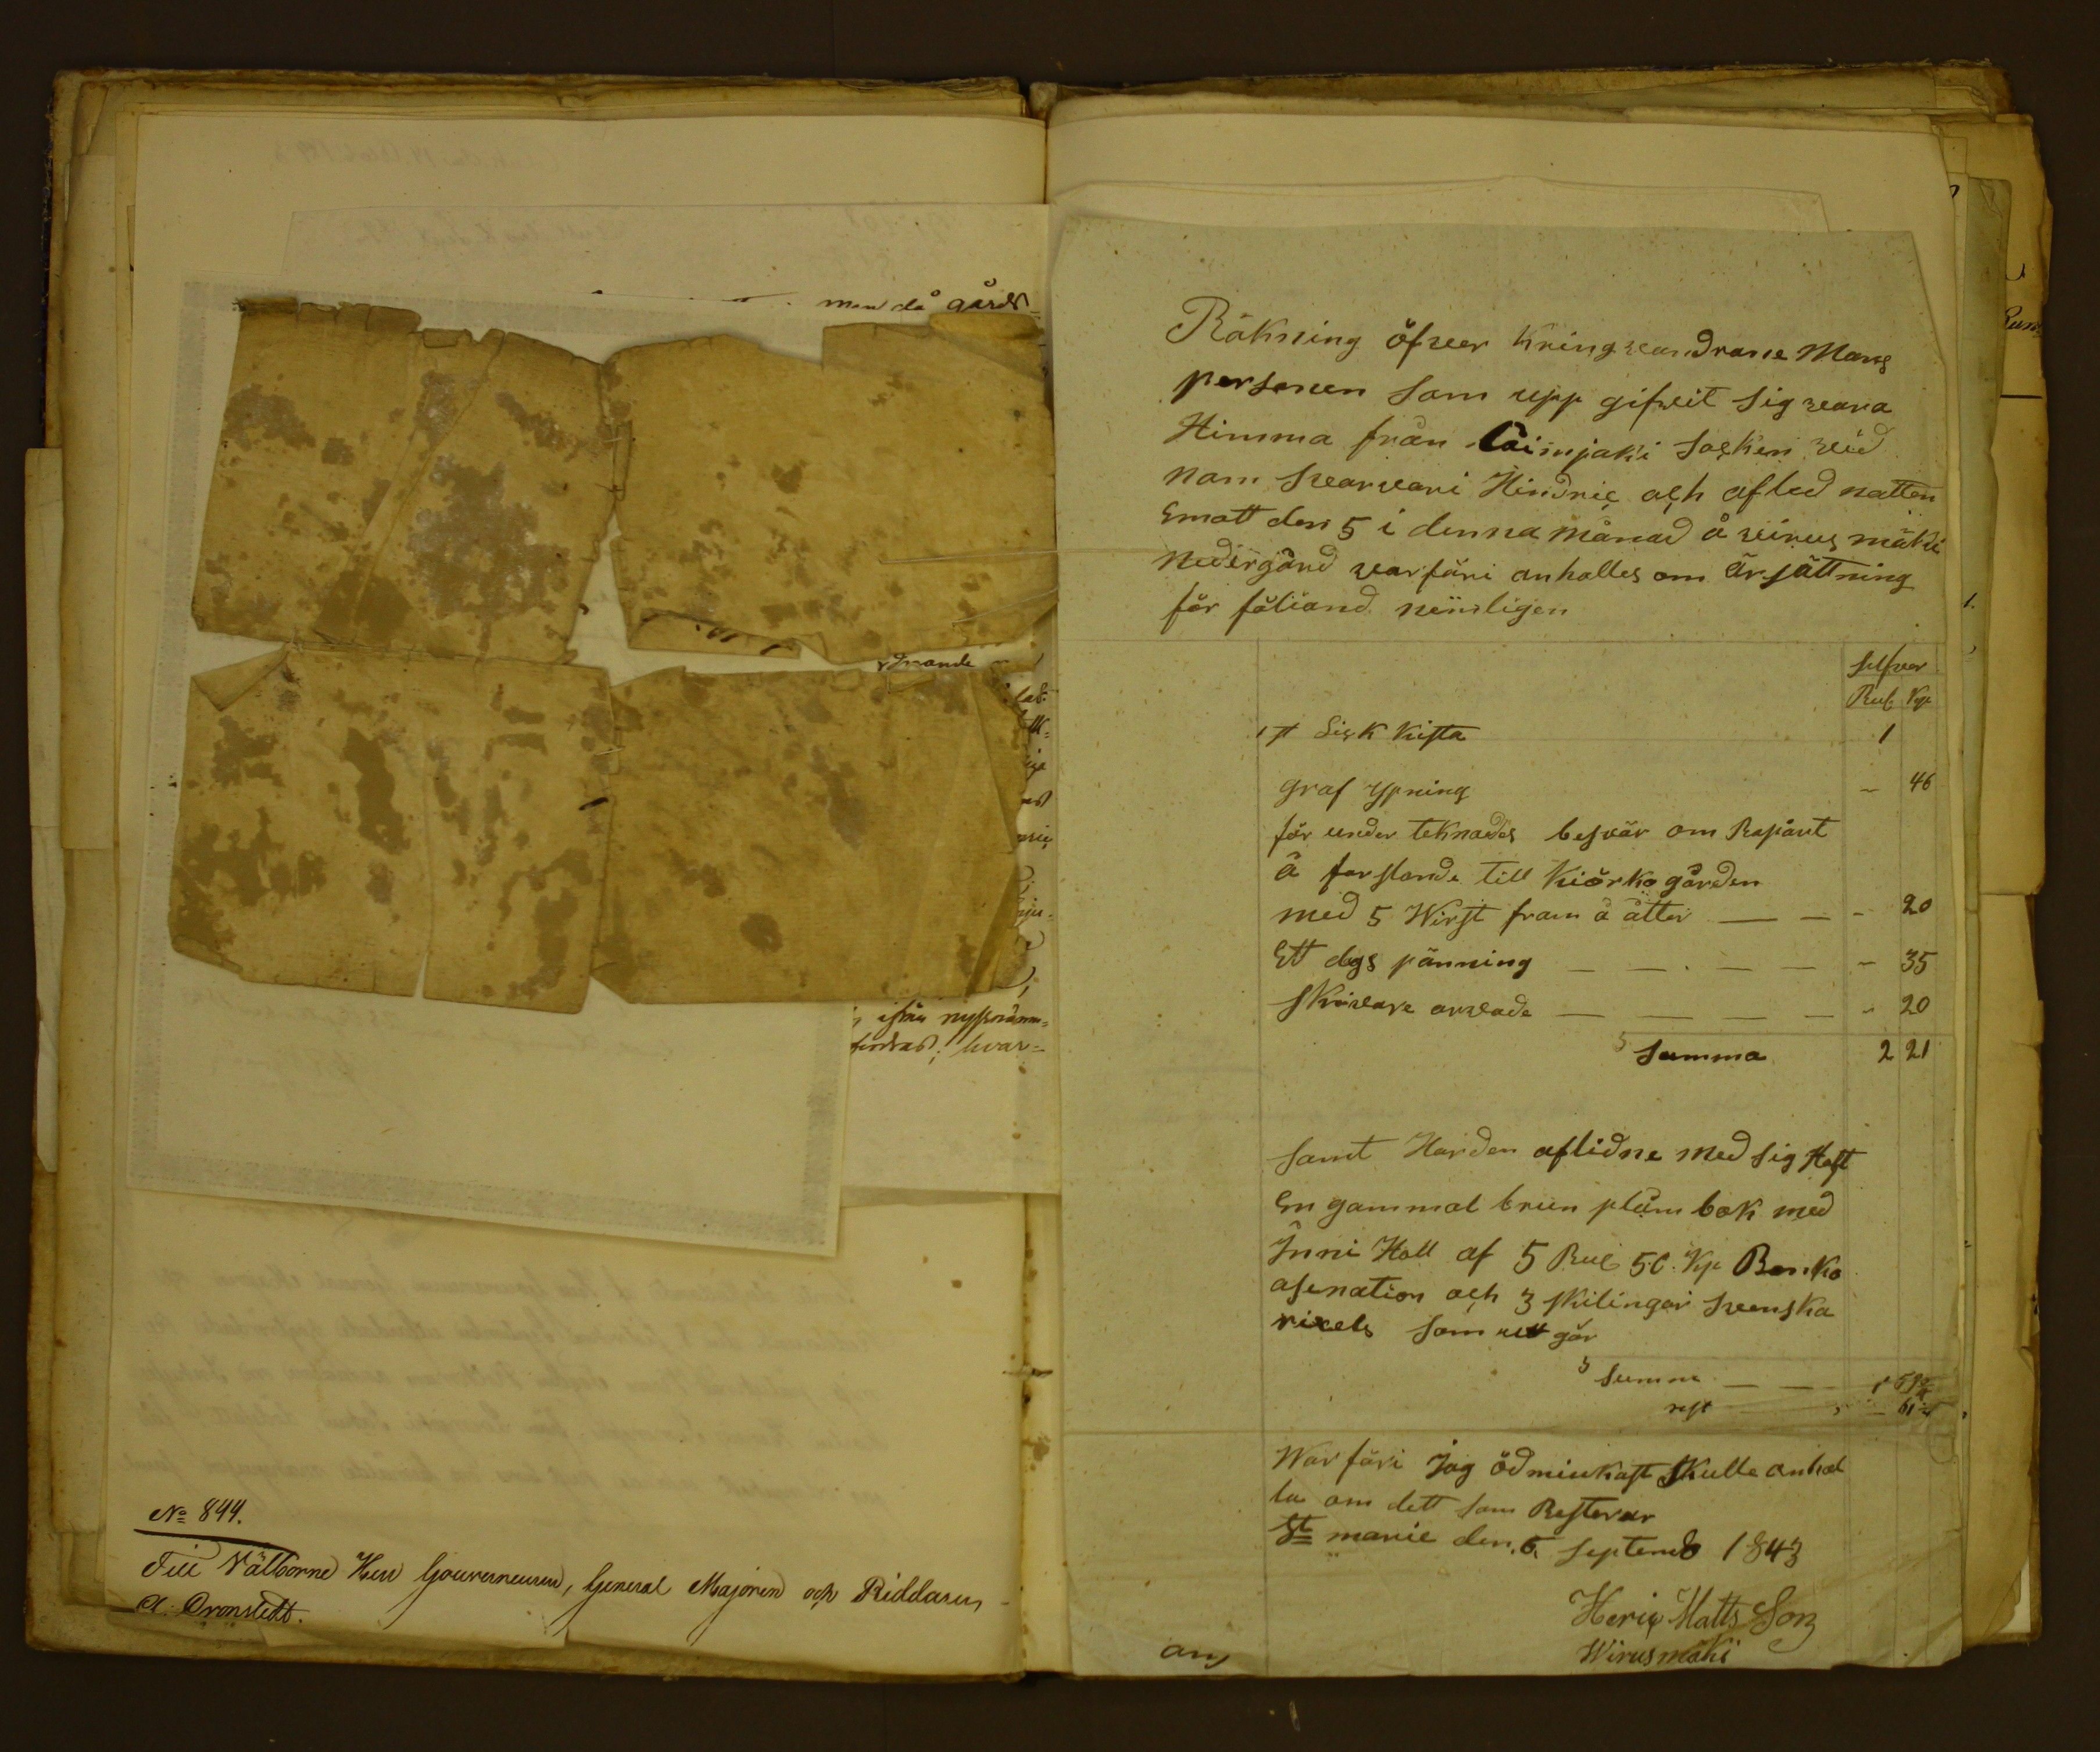 men då gårds-
isin nyssnämn-
hvar-
No 844.
Till Välborne Herr Gouverneuren, General Majoren och Riddaren
A. Cronstedt.
Räkning öfver Kringvandrane Mans
personen som upp gifvit sig vara
Himma från Loimjaki socken vid
nam Svarvari Hindric och afled natten
Emott den 5 i denna månad å virus mäki
nedergård varföri anholles om Ärsättning
för föliand nemligen
silfver
Rub Kp
1 st Lick Kista 1
graf ypning - 46
för under teknades besvär om Rapårt
å forslande till Kiörko gården
med 5 Wirst fram å åtter — — - 20
Ett dags pänning — — — — - 35
Skrivare arvade — — — — - 20
Summa 2 21
samt Har den aflidne med sig Haft
En gammal brun plåm bok med
Inni Hall af 5 Rub 50 Kp Banko
asination och 3 skilingar Svenska
rixels som utt gör
Summa — — 1 59
rest — 61
War före Jag ödmiukast skulle anhål
la om dett som Resterar
St marie den 6 Septemb 1843
Heric Matts Son
Wirusmäki